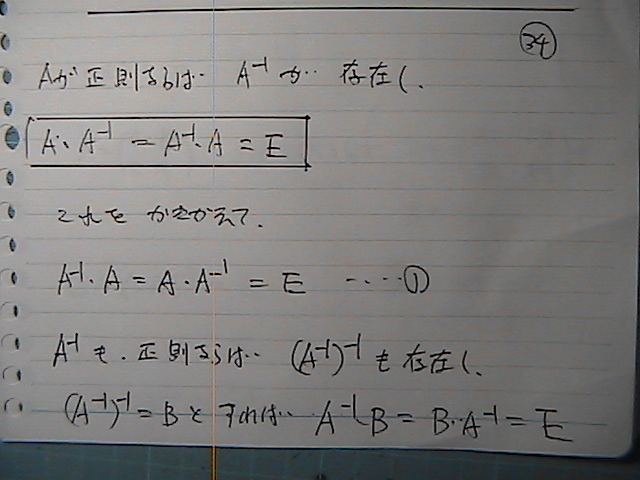 34
Aが正則ならば A⁻¹が 存在し、
A・A⁻¹ = A⁻¹・A = E
これを かきかえて、
A⁻¹・A = A・A⁻¹ = E ‥‥①
A⁻¹も、正則ならば (A⁻¹)⁻¹も存在し、
(A⁻¹)⁻¹ = Bと すれば A⁻¹・B = B・A⁻¹ = E